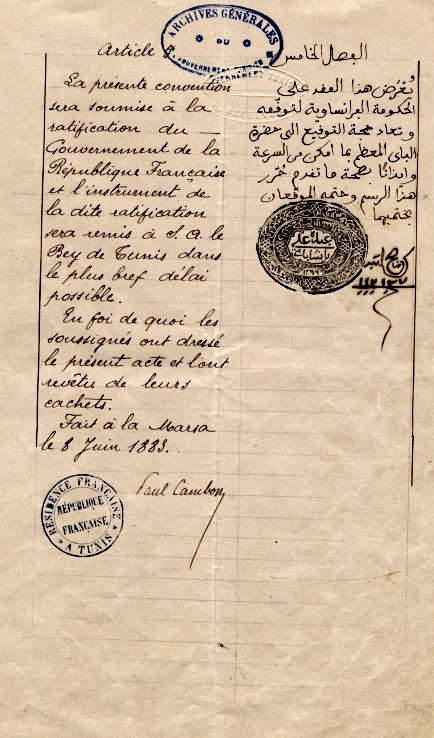 ARCHIVES GÉNÉRALES
DU
Article 5
La présente convention
sera soumise à la
ratification du
Gouvernement de la
République Française
et l'instrument de
la dite ratification
sera remis à S. A. le
Bey de Tunis dans
le plus bref délai
possible.
En foi de quoi les
soussignés ont dressé
le présent acte et l'ont
revêtu de leurs
cachets.
Fait à la Marsa
le 8 Juin 1883.
Paul Cambon
RÉSIDENCE FRANÇAISE
RÉPUBLIQUE
FRANÇAISE
A TUNIS
الفصل الخامس
تُعْرَض هذا العقد على
الحكومة الفرانساوية لتوقّعه
وتعاد حجة التوقيع الى حضرة
الباي المعظم بما امكن من السرعة
وايذانًا بصحة ما تقدم حُرّر
هذا الرسم وختمه الموقعان
بختميهما